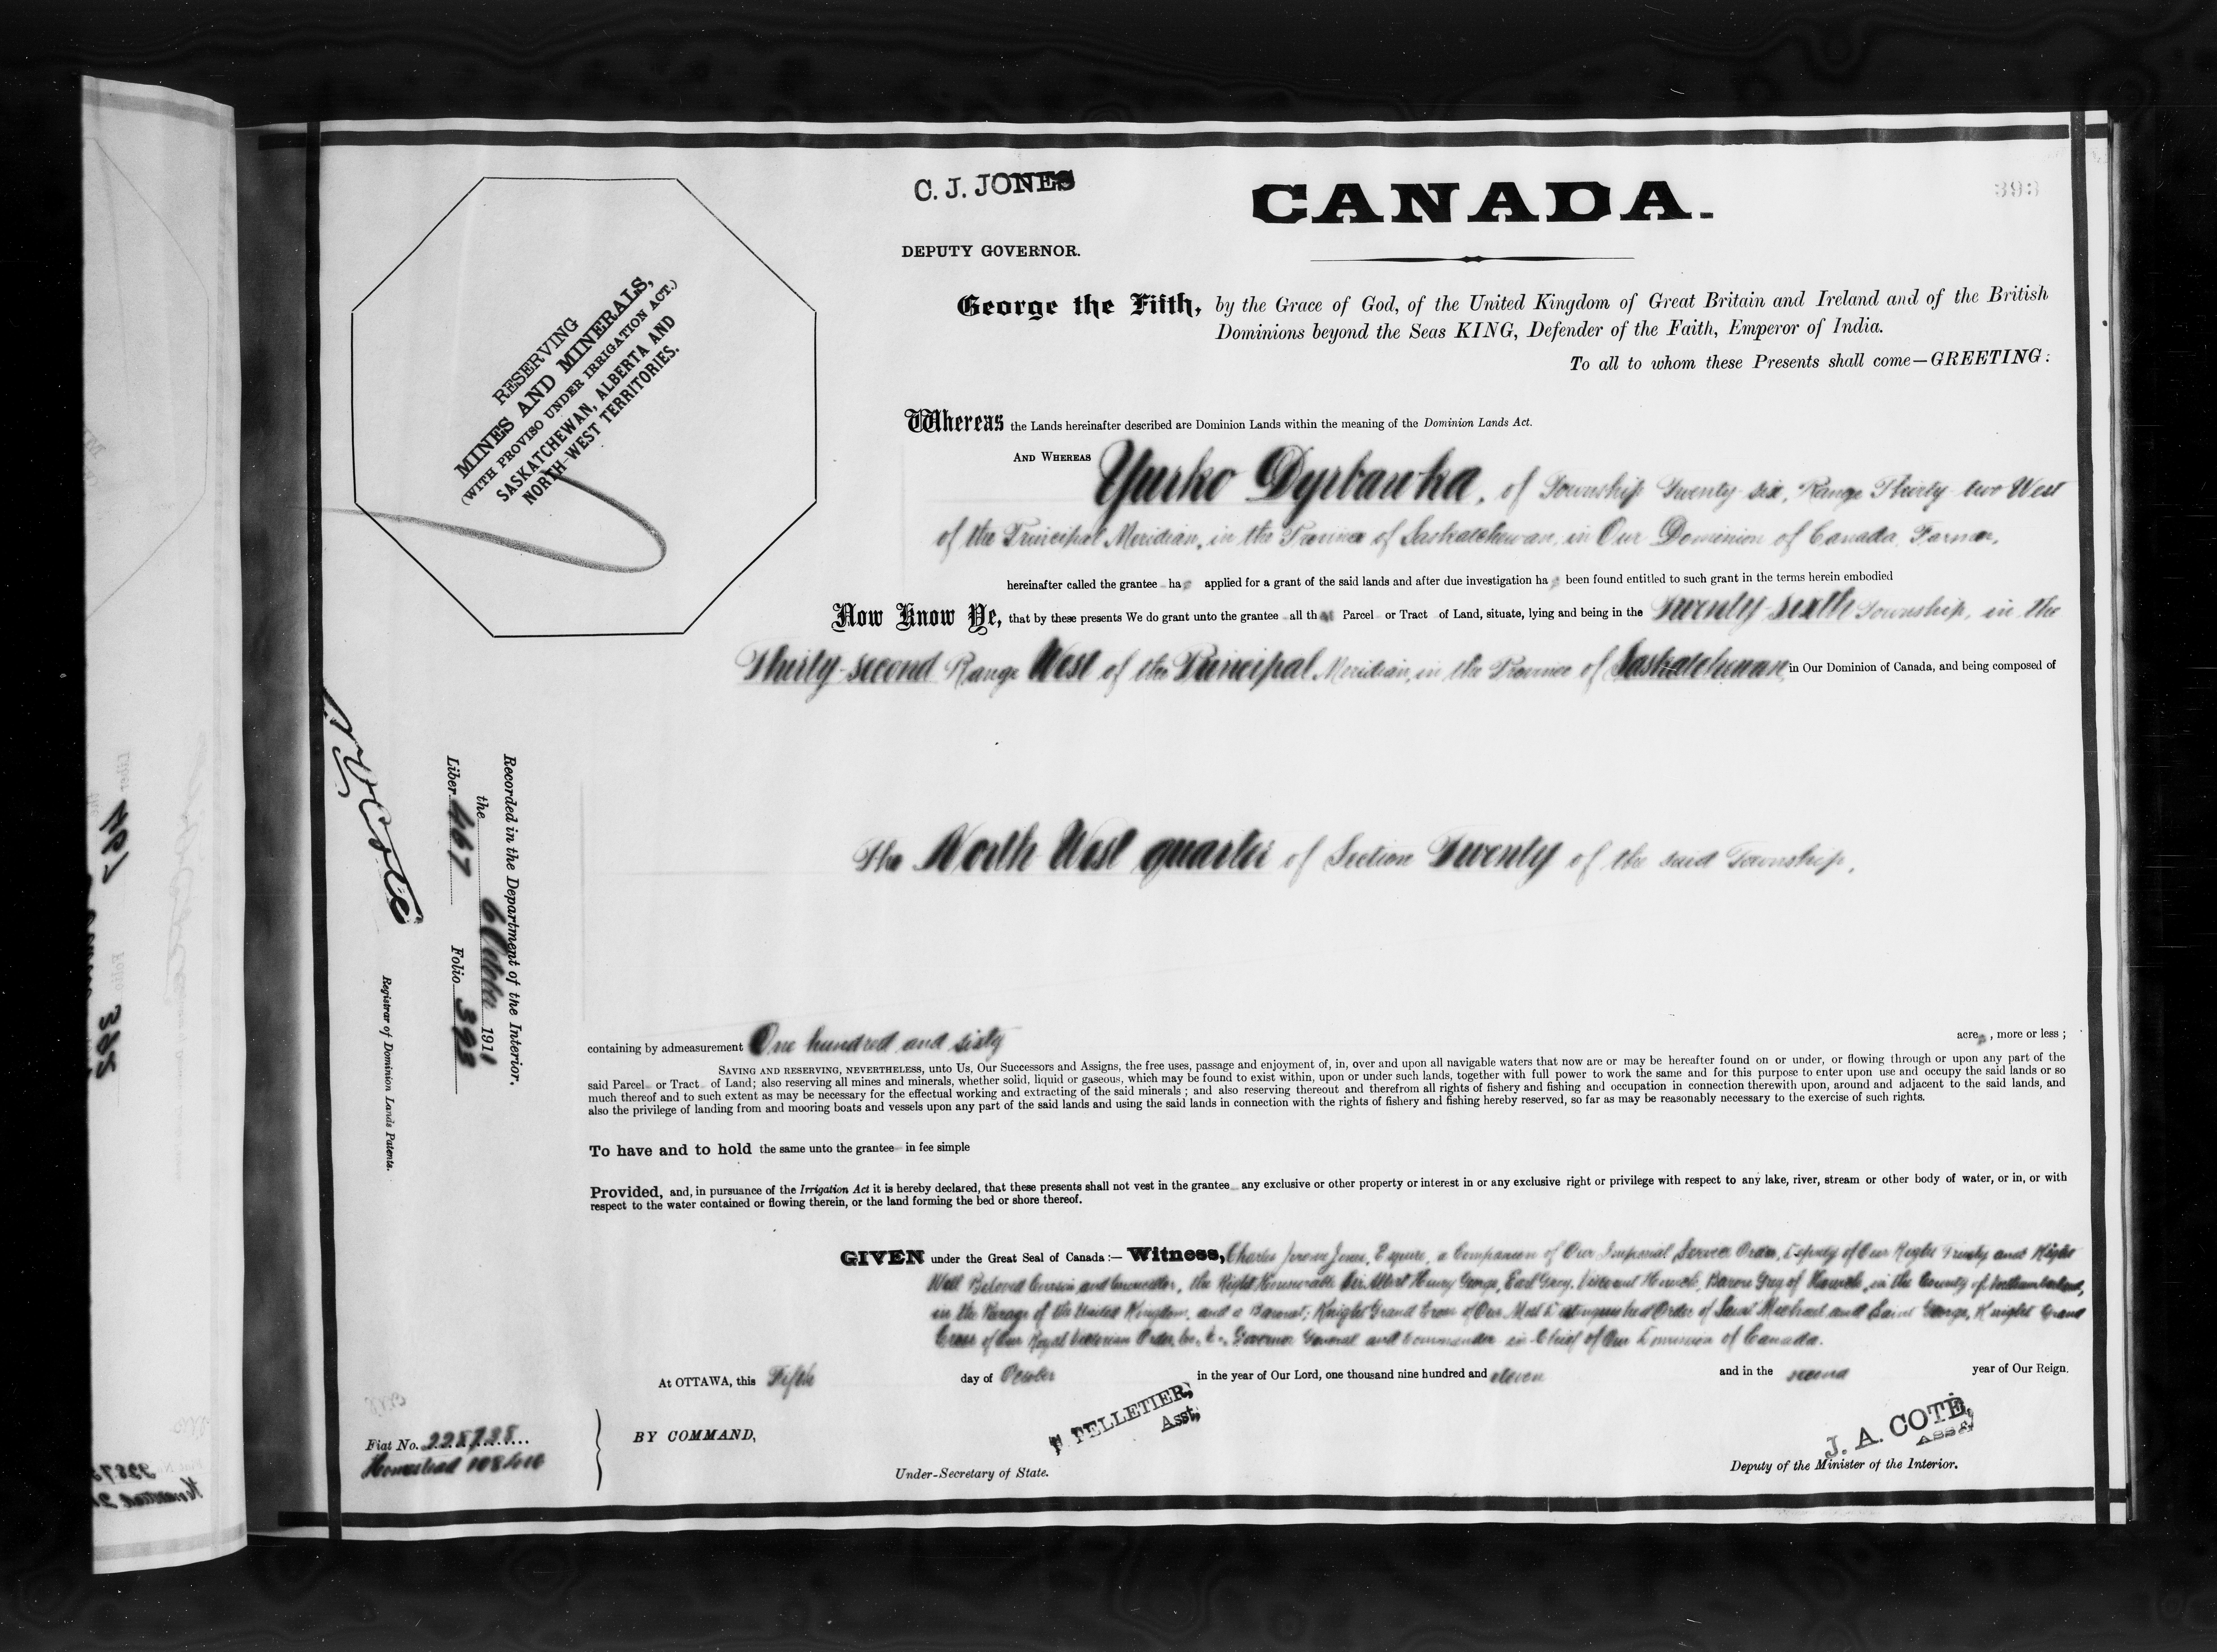 C. J. JONES
DEPUTY GOVERNOR.
CANADA.
393
RESERVING
MINES AND MINERALS,
(WITH PROVISO UNDER IRRIGATION ACT.)
SASKATCHEWAN, ALBERTA AND
NORTH-WEST TERRITORIES.
George the Fifth, by the Grace of God, of the United Kingdom of Great Britain and Ireland and of the British
Dominions beyond the Seas KING, Defender of the Faith, Emperor of India.
To all to whom these Presents shall come—GREETING:
Whereas the Lands hereinafter described are Dominion Lands within the meaning of the Dominion Lands Act.
AND WHEREAS Yurko Dyrbawka, of Township Twenty six, Range Thirty two West
of the Principal Meridian, in the Province of Saskatchewan, in Our Dominion of Canada, Farmer,
hereinafter called the grantee has applied for a grant of the said lands and after due investigation has been found entitled to such grant in the terms herein embodied
Now Know Ye, that by these presents We do grant unto the grantee all that Parcel or Tract of Land, situate, lying and being in the Twenty-sixth Township, in the
Thirty-second Range West of the Principal Meridian, in the Province of Saskatchewan, in Our Dominion of Canada, and being composed of
The North West quarter of Section Twenty of the said Township,
containing by admeasurement One hundred and sixty acres, more or less;
SAVING AND RESERVING, NEVERTHELESS, unto Us, Our Successors and Assigns, the free uses, passage and enjoyment of, in, over and upon all navigable waters that now are or may be hereafter found on or under, or flowing through or upon any part of the
said Parcel or Tract of Land; also reserving all mines and minerals, whether solid, liquid or gaseous, which may be found to exist within, upon or under such lands, together with full power to work the same and for this purpose to enter upon use and occupy the said lands or so
much thereof and to such extent as may be necessary for the effectual working and extracting of the said minerals; and also reserving thereout and therefrom all rights of fishery and fishing and occupation in connection therewith upon, around and adjacent to the said lands, and
also the privilege of landing from and mooring boats and vessels upon any part of the said lands and using the said lands in connection with the rights of fishery and fishing hereby reserved, so far as may be reasonably necessary to the exercise of such rights.
To have and to hold the same unto the grantee in fee simple
Provided, and, in pursuance of the Irrigation Act it is hereby declared, that these presents shall not vest in the grantee any exclusive or other property or interest in or any exclusive right or privilege with respect to any lake, river, stream or other body of water, or in, or with
respect to the water contained or flowing therein, or the land forming the bed or shore thereof.
GIVEN under the Great Seal of Canada:— Witness, Charles Jerome Jones, Esquire, a Companion of Our Imperial Service Order, Deputy of Our Right Trusty and Right
Well Beloved Cousin and Councillor, the Right Honourable Sir Albert Henry George, Earl Grey, Viscount Howick, Baron Grey of Howick, in the County of Northumberland,
in the Peerage of the United Kingdom, and a Baronet; Knight Grand Cross of Our Most Distinguished Order of Saint Michael and Saint George, Knight Grand
Cross of Our Royal Victorian Order, &c., &c., Governor General and Commander in Chief of Our Dominion of Canada.
At OTTAWA, this Fifth day of October in the year of Our Lord, one thousand nine hundred and eleven and in the second year of Our Reign.
BY COMMAND,
P. PELLETIER,
Asst,
Under-Secretary of State.
J. A. COTÉ,
ASST
Deputy of the Minister of the Interior.
Recorded in the Department of the Interior.
the 6 October 1911
Liber 467 Folio 393
Registrar of Dominion Lands Patents.
Fiat No. 225725
Homestead